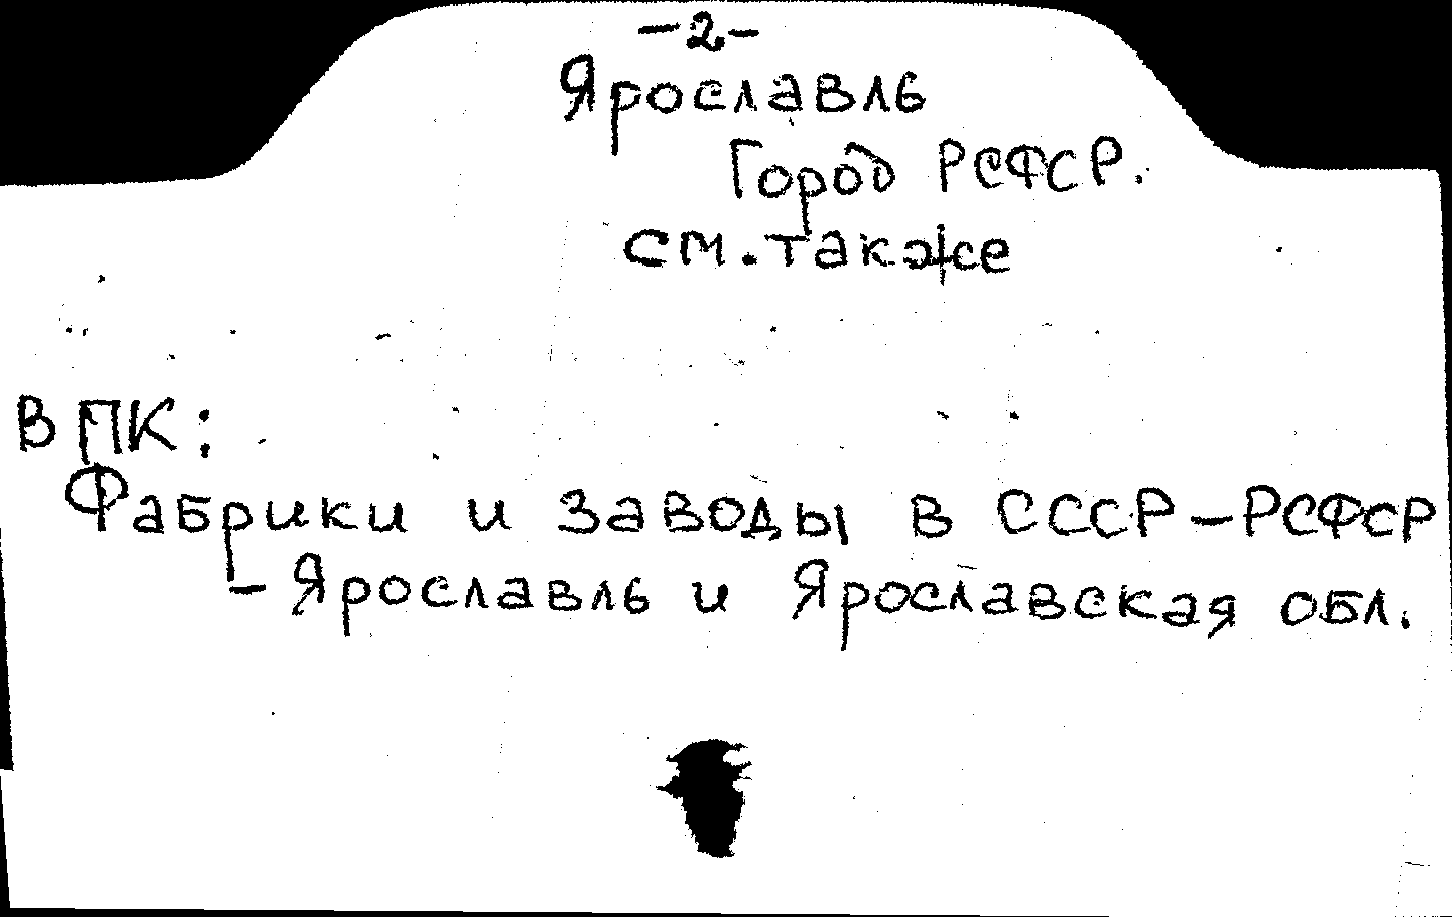 -2-
Ярославль
Город РСФСР.
см. также
В ПК:
Фабрики и заводы в СССР-РСФСР
- Ярославль и Ярославская обл.